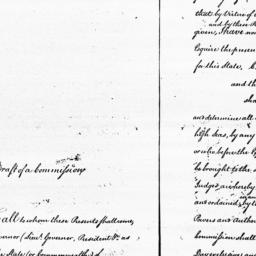 Draft of a Commission
all to whom these Presents shall come,
vernor (Lieut. Governor, President &c. as
the State (or Commonwealth) of
that by Virtue of
and by these
given, I have
Esquire the present
for this State,
and th
sha
and determine all
high Seas, by any
or who before the
to brought to the
Judges as hereby
and ordained, by th
Powers and Author
Commission shall